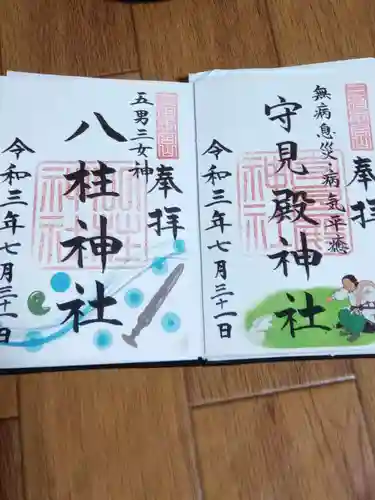 無病息災・病気平癒
奉拝
守見殿神社
令和三年七月三十一日
五男三女神
奉拝
八柱神社
令和三年七月三十一日